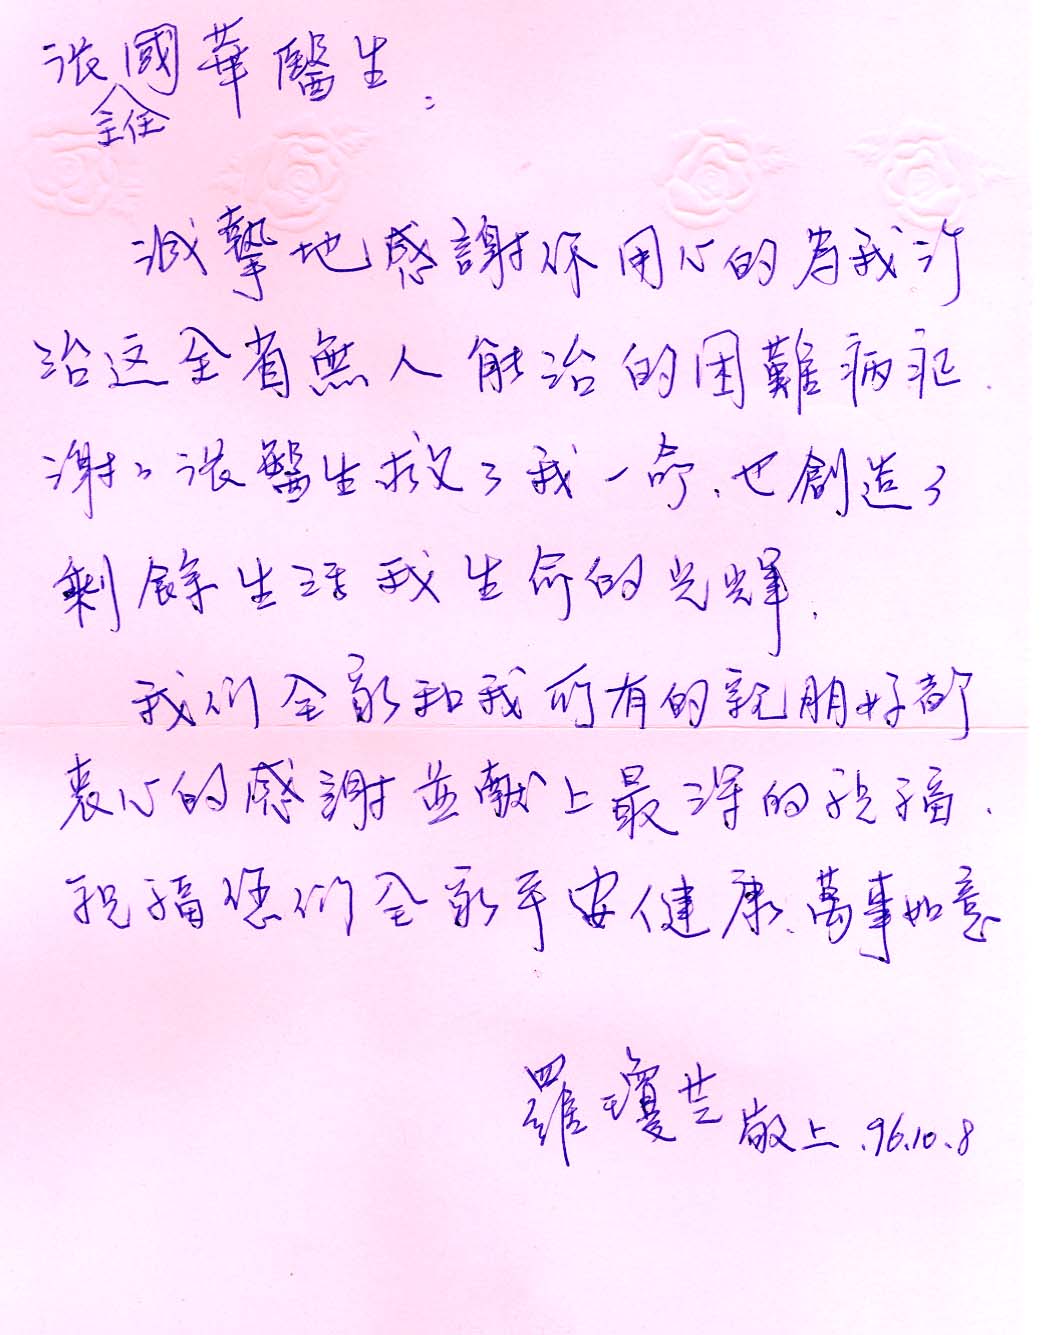 張國華醫生:
主任
誠摯地感謝你用心的為我診
治这全省無人能治的困難病症.
謝々張醫生救了我一命.也創造了
剩餘生活我生命的光輝.
我们全家和我所有的親朋好都
衷心的感謝並献上最深的祝福.
祝福您们全家平安健康.萬事如意
羅瓊 敬上.96.10.8